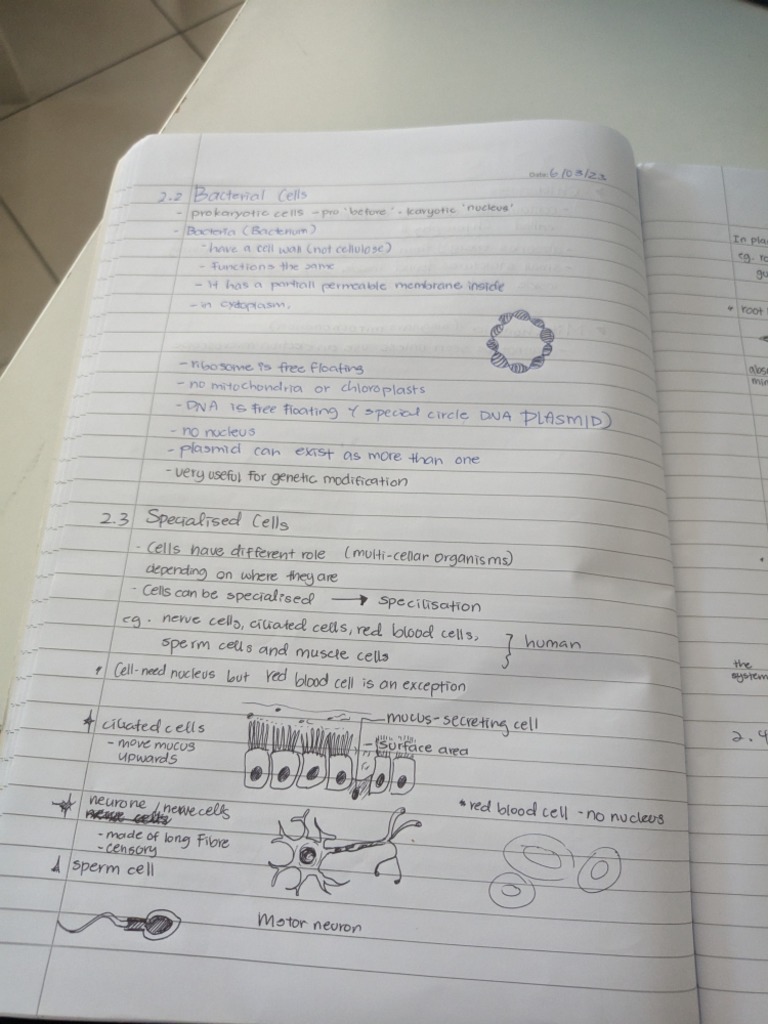 Date: 6/03/23
2.2 Bacterial Cells
- prokaryotic cells - pro 'before' - karyotic 'nucleus'
- Bacteria (Bacterium)
- have a cell wall (not cellulose)
- functions the same
- It has a partiall permeable membrane inside
- in cytoplasm.
- ribosome is free floating
- no mitochondria or chloroplasts
- DNA is free floating Y special circle DNA PLASMID)
- no nucleus
- plasmid can exist as more than one
- very useful for genetic modification
2.3 Specialised Cells
- Cells have different role (multi-cellar organisms)
depending on where they are
- Cells can be specialised → specilisation
eg. nerve cells, ciliated cells, red blood cells,
sperm cells and muscle cells } human
• Cell-need nucleus but red blood cell is an exception
* ciliated cells
- move mucus
upwards
mucus-secreting cell
- surface area
* neurone / nerve cells
- made of long Fibre
- censory
* red blood cell - no nucleus
sperm cell
Motor neuron
In pla
eg. ro
gu
• root
abs
min
the
system
2.4